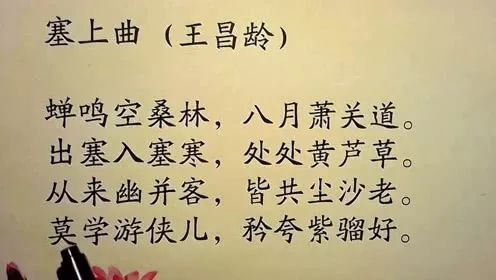 塞上曲（王昌龄）
蝉鸣空桑林，八月萧关道。
出塞入塞寒，处处黄芦草。
从来幽并客，皆共尘沙老。
莫学游侠儿，矜夸紫骝好。